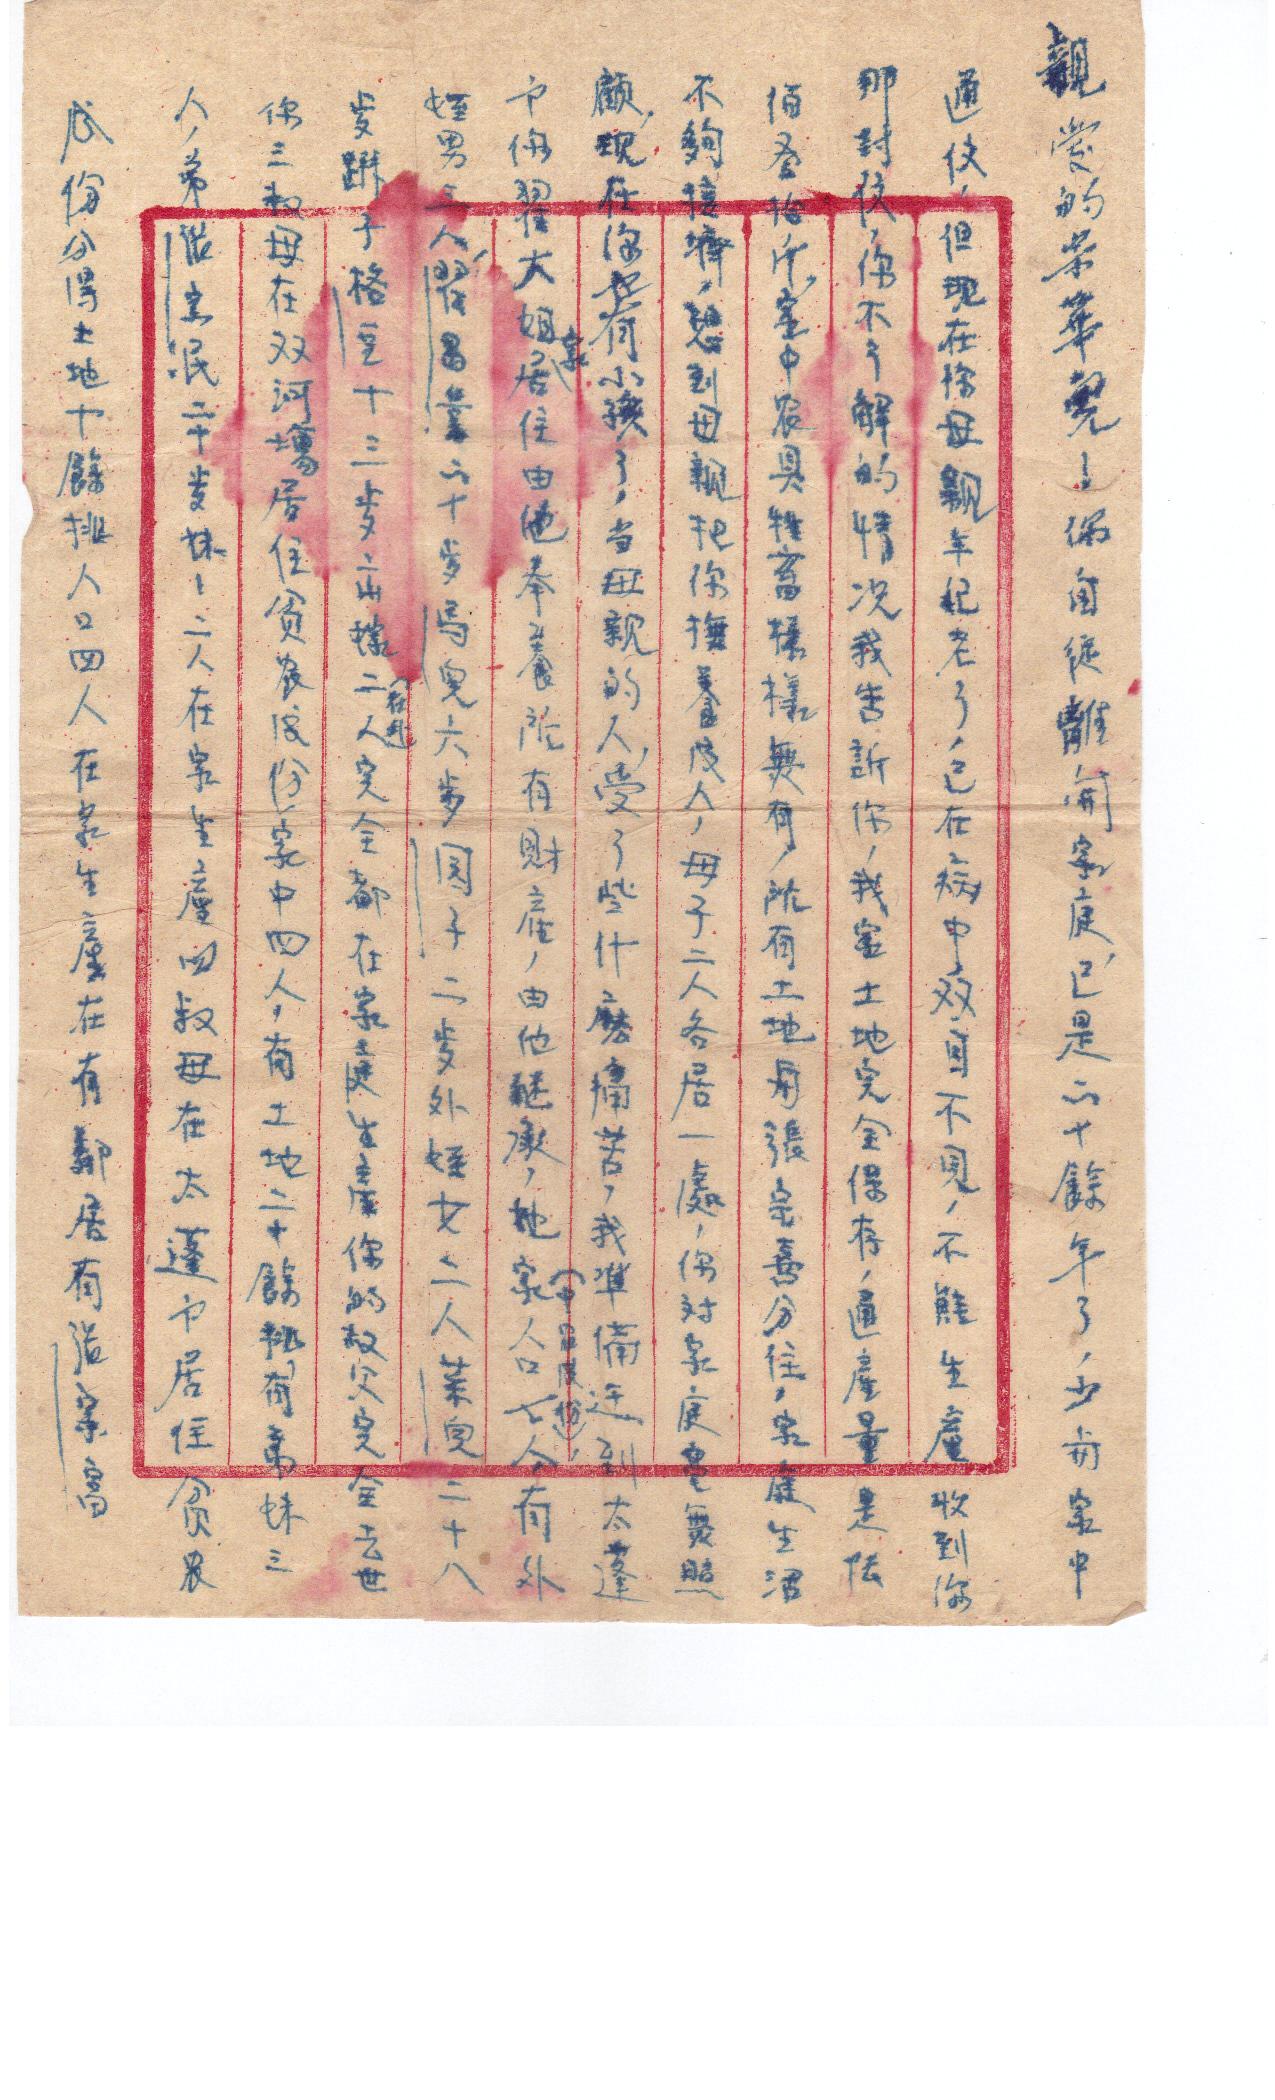 親愛的荣華兒：你自從離開家庭，已是二十餘年了，少與家中
通信，但現在你母親年紀老了，已在病中双目不見，不能生產收到你
那封信，你不了解的情况我告訴你，我家土地完全保存，通產量是伍
佰叁拾斤，家中农具牲畜樣樣無有，所有土地與張宗喜分住，家庭生活
不夠接濟，想到母親把你撫養成人，母子二人各居一處，你对家庭毫無照
顧，現在你若有小孩了，当母親的人，受了些什麽痛苦，我準備迁到太蓬
中伱翟大姐家居住由他奉養所有財產，由他継承，她家人口七人（中农成份），有外
姪男三人，翟昌業二十岁馬兒六岁園子二岁外姪女二人菜兒二十八
岁 子格 十三岁 二人（在外）完全都在家庭生產你的叔父完全去世
你三叔母在双河塲居住貧农成份，家中四人，有土地二十餘挑有弟妹三
人，弟張宗民二十岁妹妹二人在家生產四叔母在太蓬中居住貧农
成份分得土地十餘挑人口四人在家生產在有鄰居有張宗富